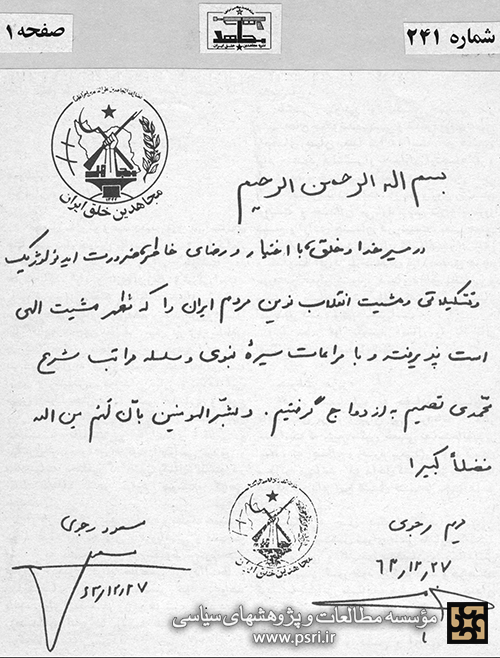 شماره ۲۴۱
مجاهد
صفحه ۱
مجاهدین خلق ایران
بسم اله الرحمن الرحیم
در مسیر خدا و خلق، با اختیار و رضای خاطر، ضرورت ایدئولوژیک
و تشکیلاتی و مشیت انقلاب نوین مردم ایران را که مظهر مشیت الهی
است پذیرفته و با مراعات سیرهٔ نبوی و سلسله مراتب شرع
محمّدی تصمیم به ازدواج گرفتیم. و بشّر المومنین بانّ لهم من الله
فضلاً کبیرا
مریم رجوی
۶۳٫۱۲٫۲۷
مسعود رجوی
۶۳٫۱۲٫۲۷
مجاهدین خلق ایران
مؤسسه مطالعات و پژوهشهای سیاسی
www.psri.ir